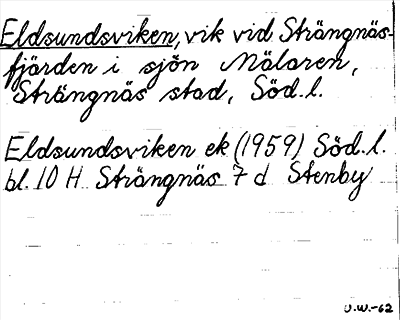 Eldsundsviken, vik vid Strängnäs-
fjärden i sjön Mälaren,
Strängnäs stad, Söd.l.
Eldsundsviken ek (1959) Söd.l.
bl. 10 H Strängnäs 7 d Stenby
U.W.-62